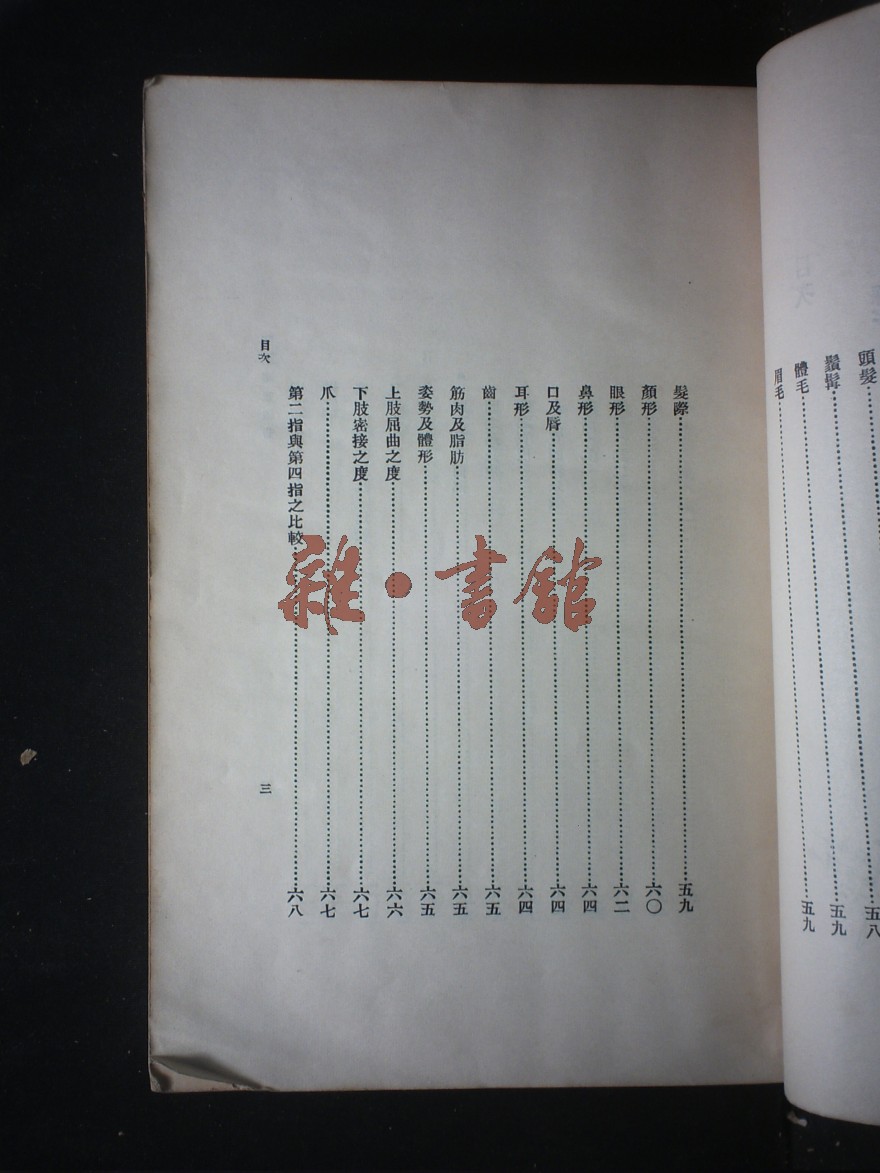 頭髮……五八
鬚髯……五九
體毛……五九
眉毛
髮際……五九
顏形……六〇
眼形……六二
鼻形……六四
口及唇……六四
耳形……六四
齒……六五
筋肉及脂肪……六五
姿勢及體形……六五
上肢屈曲之度……六六
下肢密接之度……六七
爪……六七
第二指與第四指之比較……六八
目次
三
雜·書館